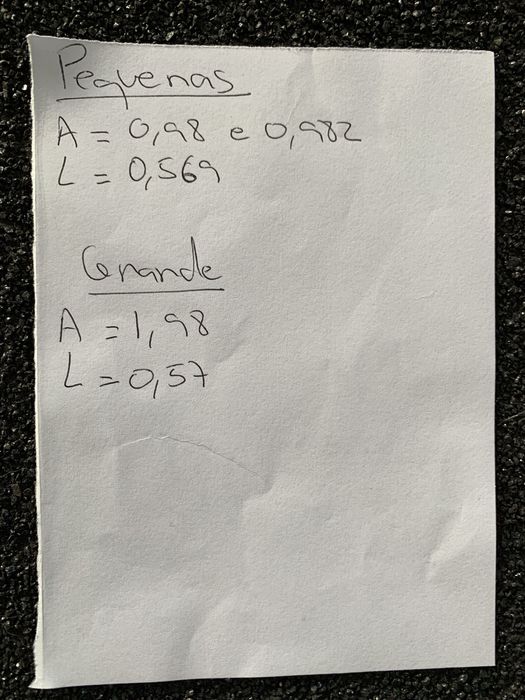 Pequenas
A = 0,98 e 0,982
L = 0,569
Grande
A = 1,98
L = 0,57